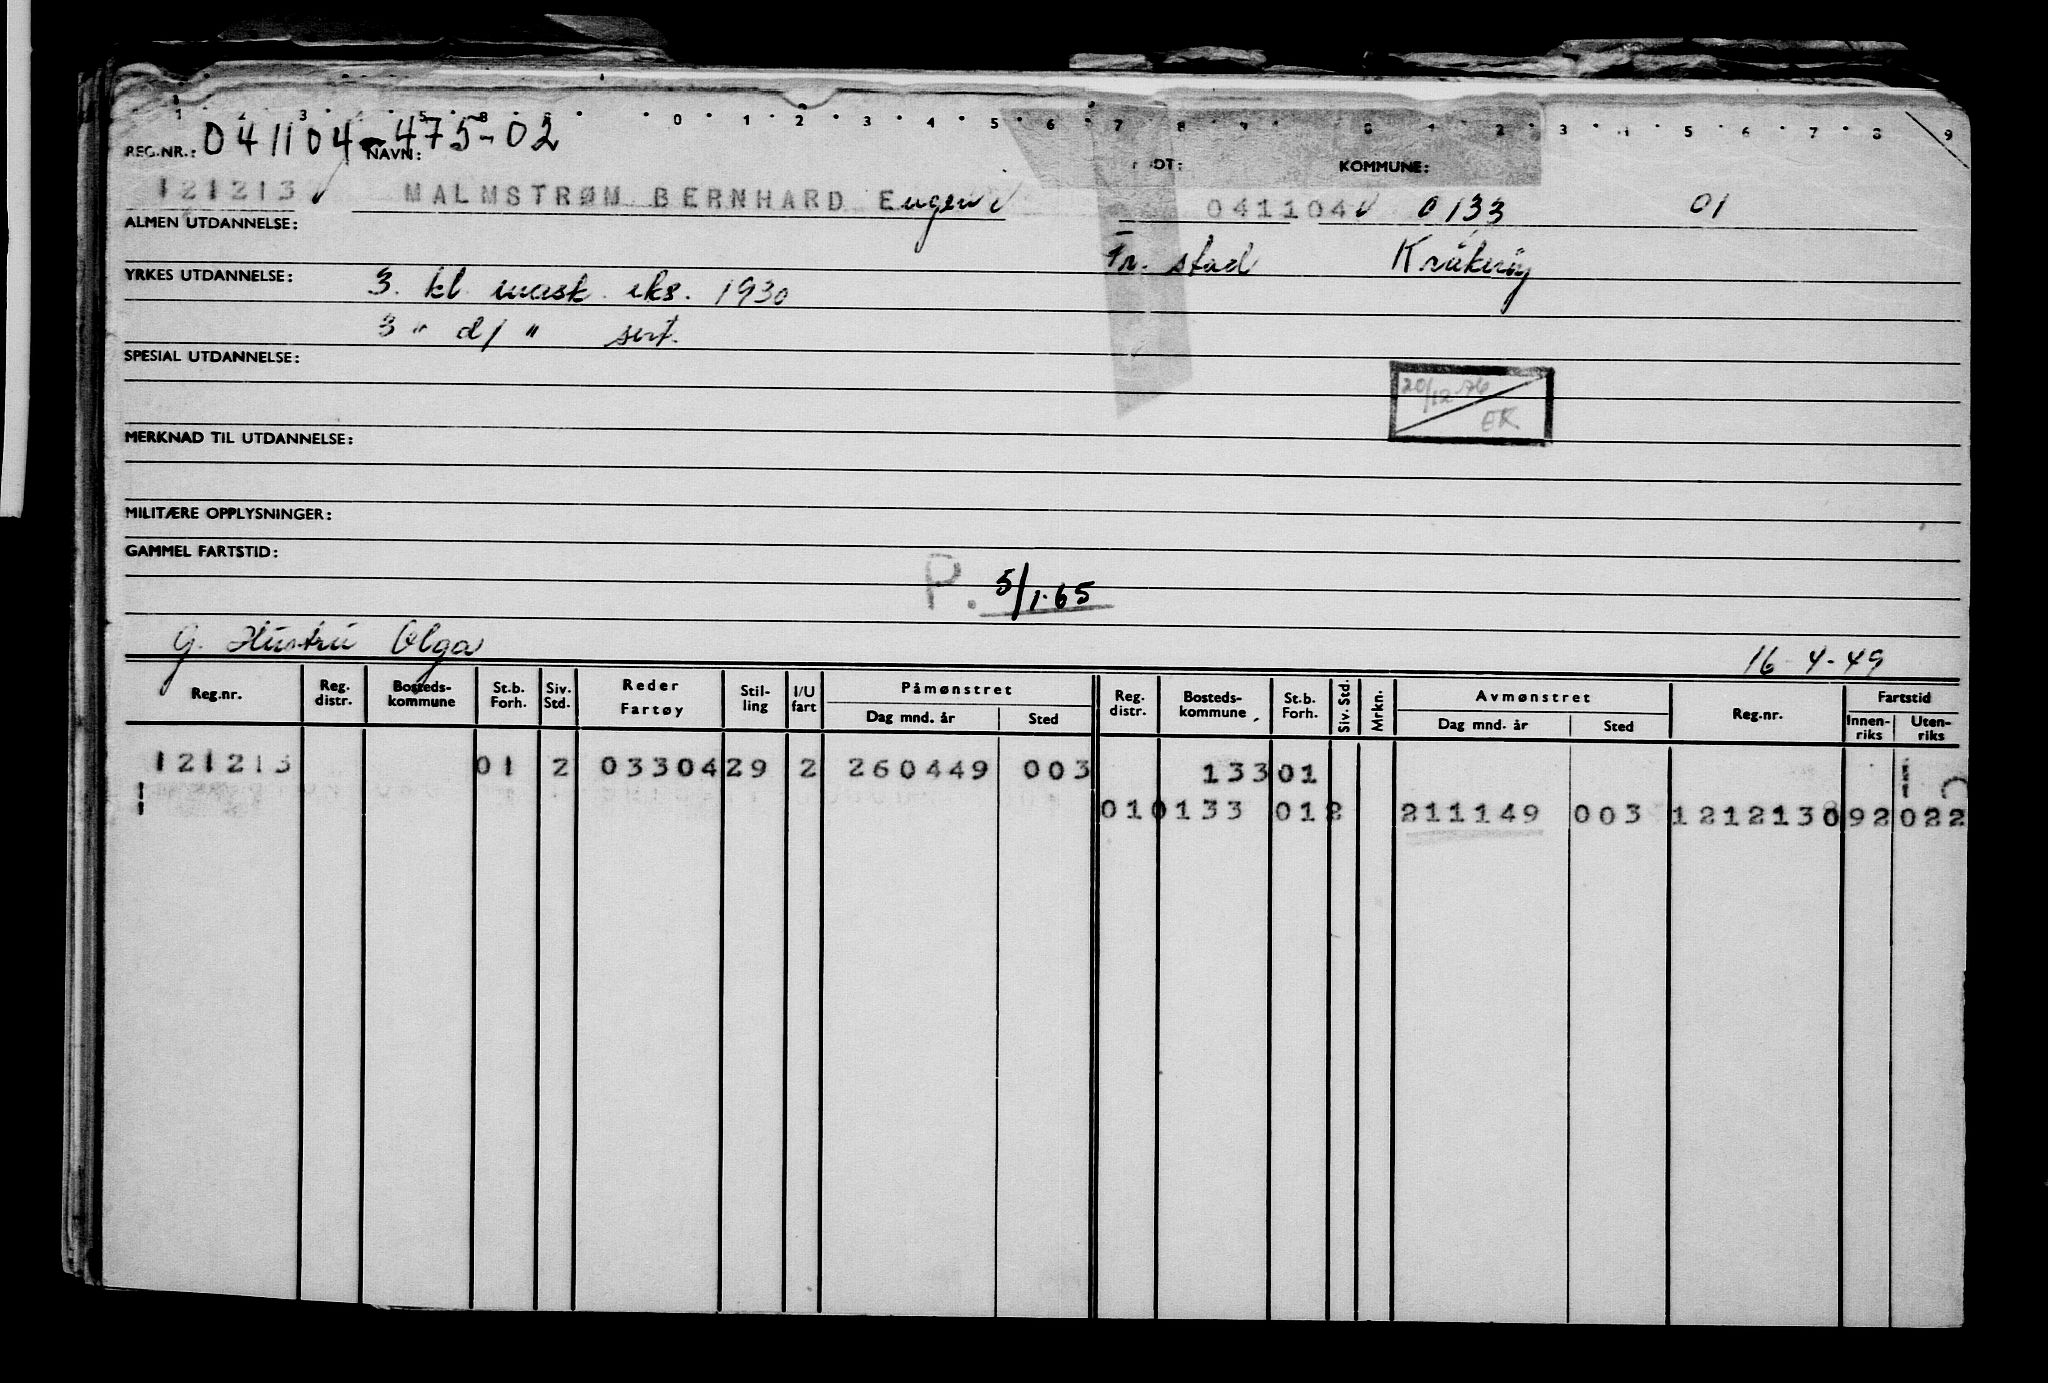 1 2 3 4 5 8 0 1 2 3 4 5 6 7 8 9 0 1 2 3 4 5 6 7 8 9
REG.NR.: 041104-475-02 NAVN: KOMMUNE:
121213 MALMSTRØM BERNHARD Eugen 041104 0133 01
ALMEN UTDANNELSE: Fr. stad Kråkerøy
YRKES UTDANNELSE: 3. kl. mask. eks. 1930
3 " d/ " sert.
SPESIAL UTDANNELSE:
20/12 76
EK
MERKNAD TIL UTDANNELSE:
MILITÆRE OPPLYSNINGER:
GAMMEL FARTSTID:
P. 5/1.65
G. Hustru Olga 16-4-49
Reg.nr. Reg. distr. Bosteds-kommune St.b. Forh. Siv. Std. Reder Fartøy Stil-ling I/U fart Påmønstret Dag mnd. år Sted Reg. distr. Bosteds-kommune St.b. Forh. Siv. Std. Mrkn. Avmønstret Dag mnd. år Sted Reg.nr. Fartstid Innen-riks Uten-riks
121213 01 2 03304 29 2 260449 003 133 01
010133 012 211149 003 1212130 92 022